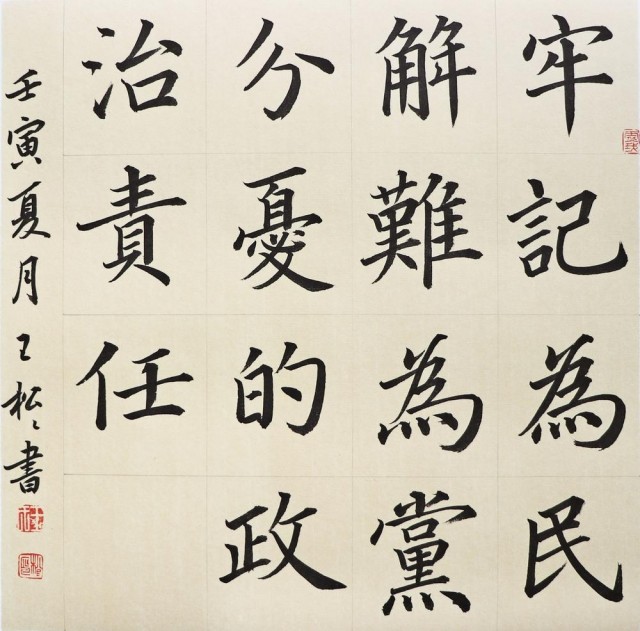 牢記為民
解難為黨
分憂的政
治責任
壬寅夏月王松〻書